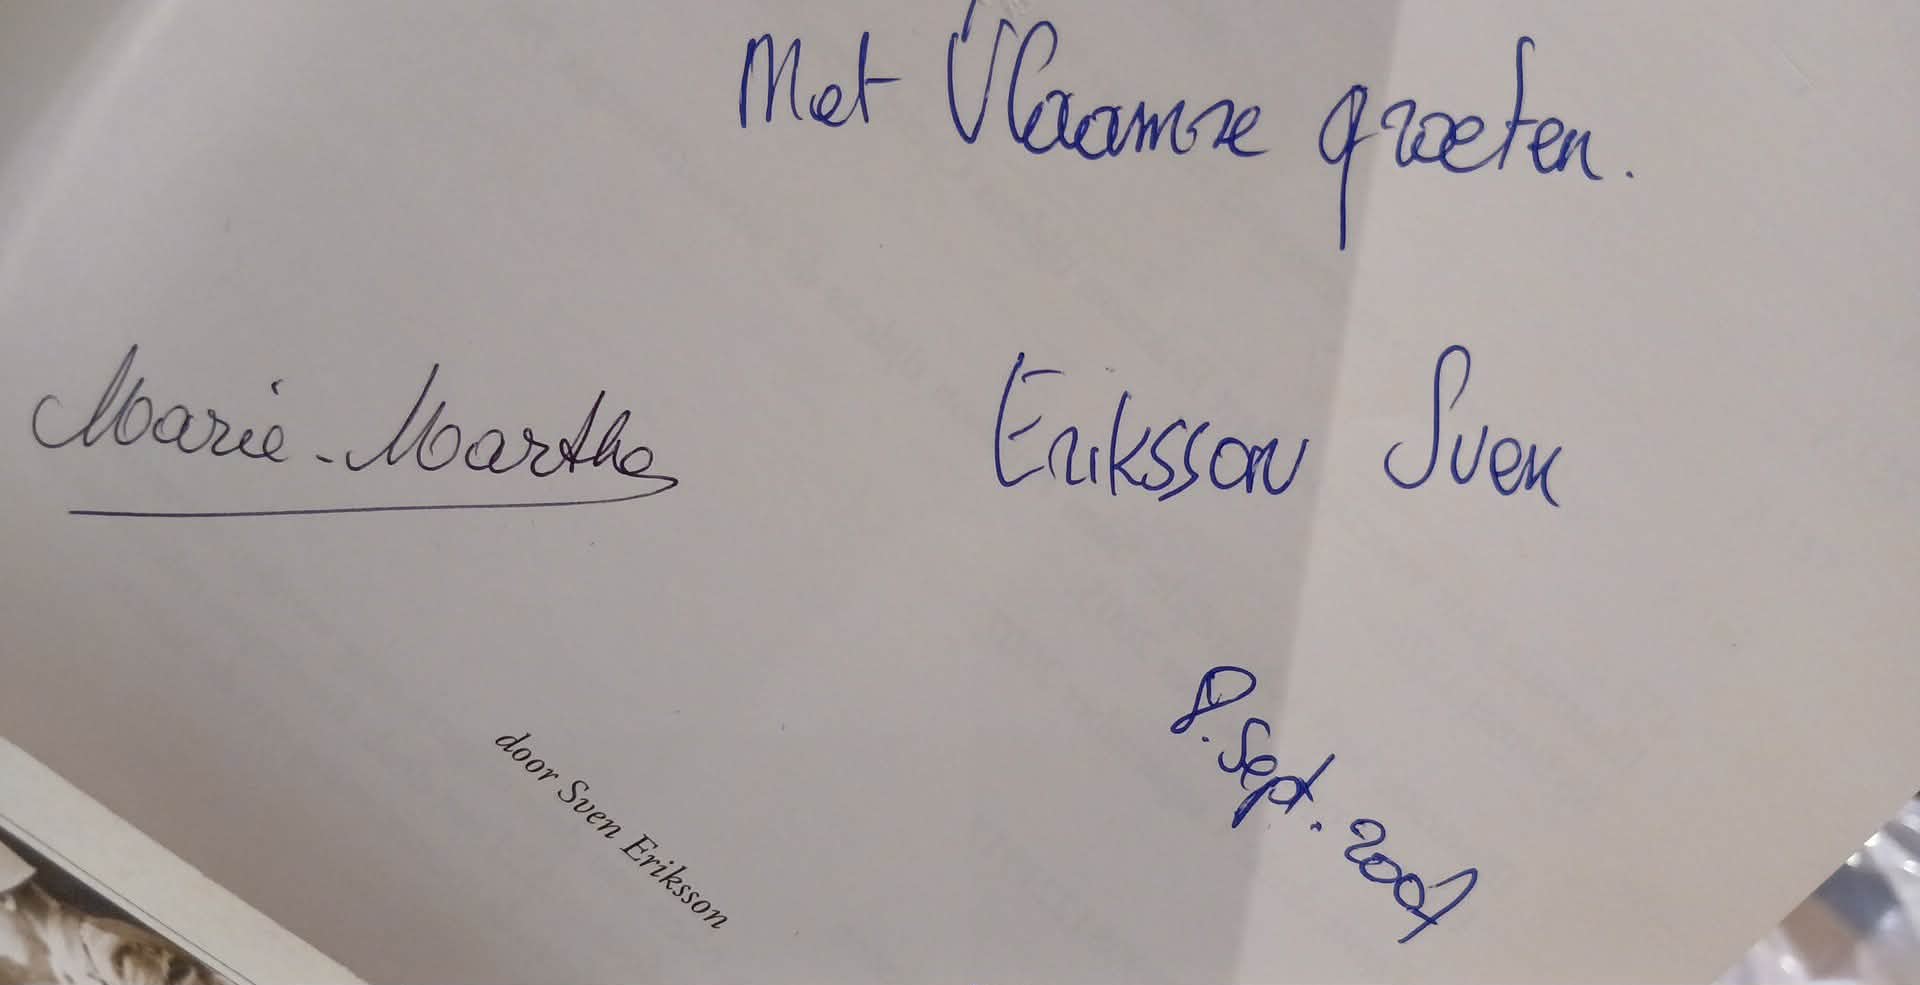 Met Vlaamse groeten.
Marie-Marthe
Eriksson Sven
8. Sept. 2007
door Sven Eriksson